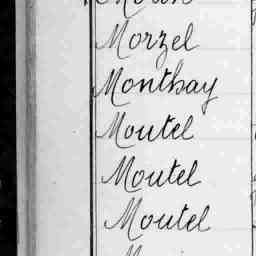 Morzel
Monthay
Moutel
Moutel
Moutel